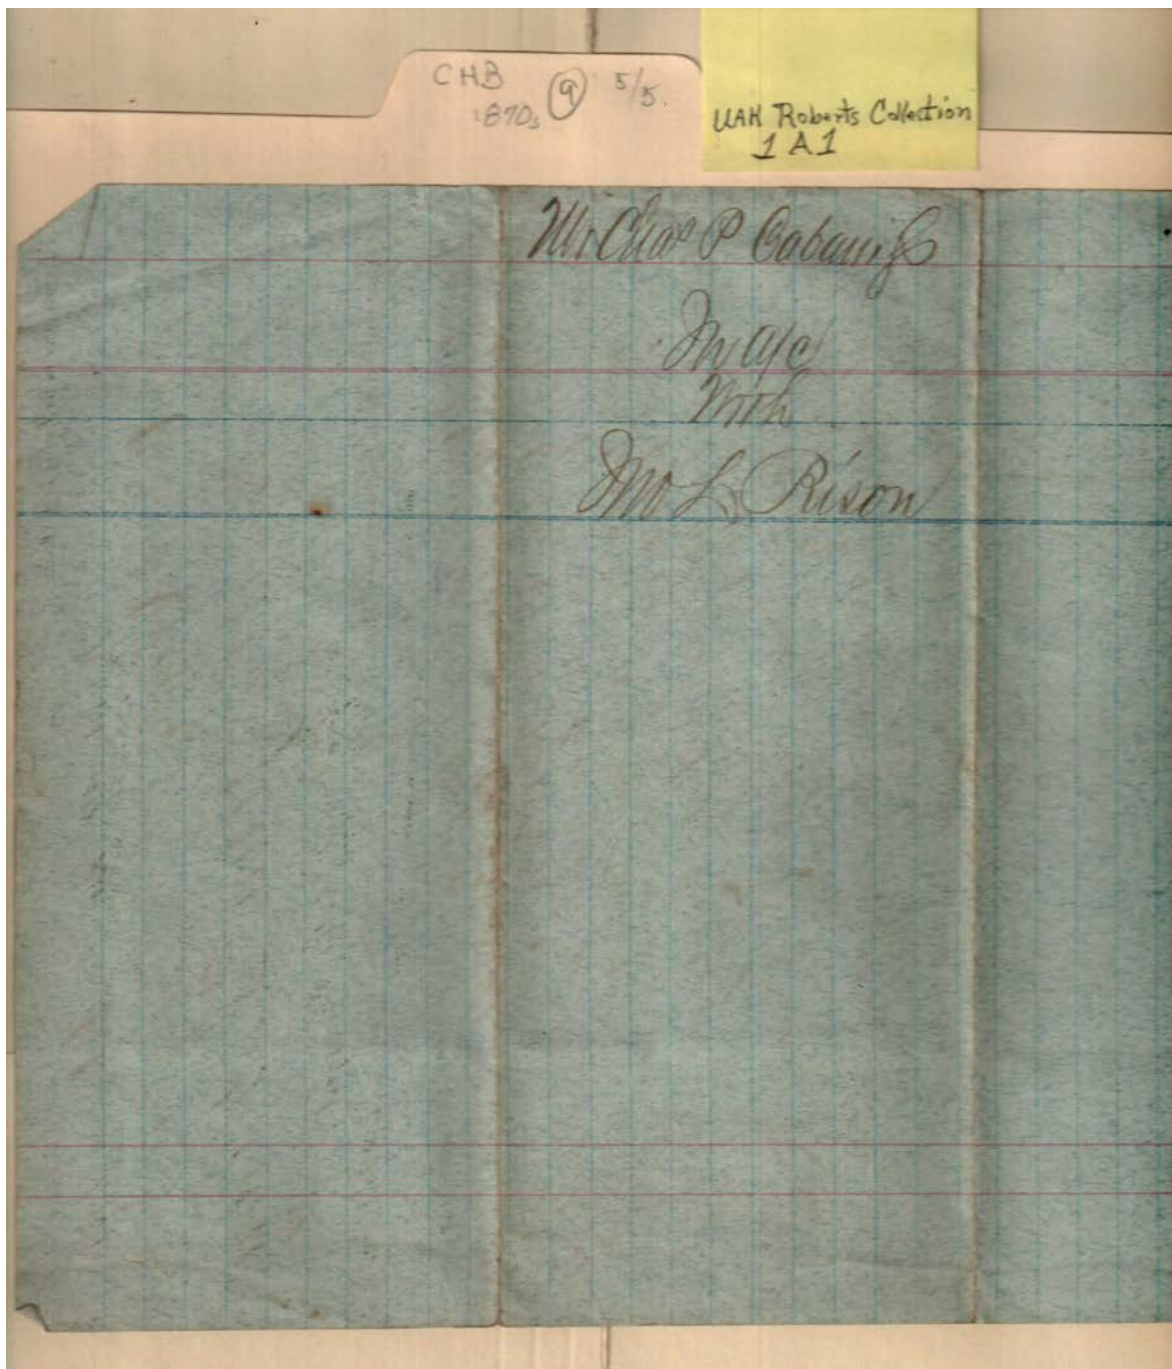 CHB
1870s
9
5/5.
UAH Roberts Collection
1 A 1
Mr Chas P Cabaniss
In a/c
With
Jno L, Rison